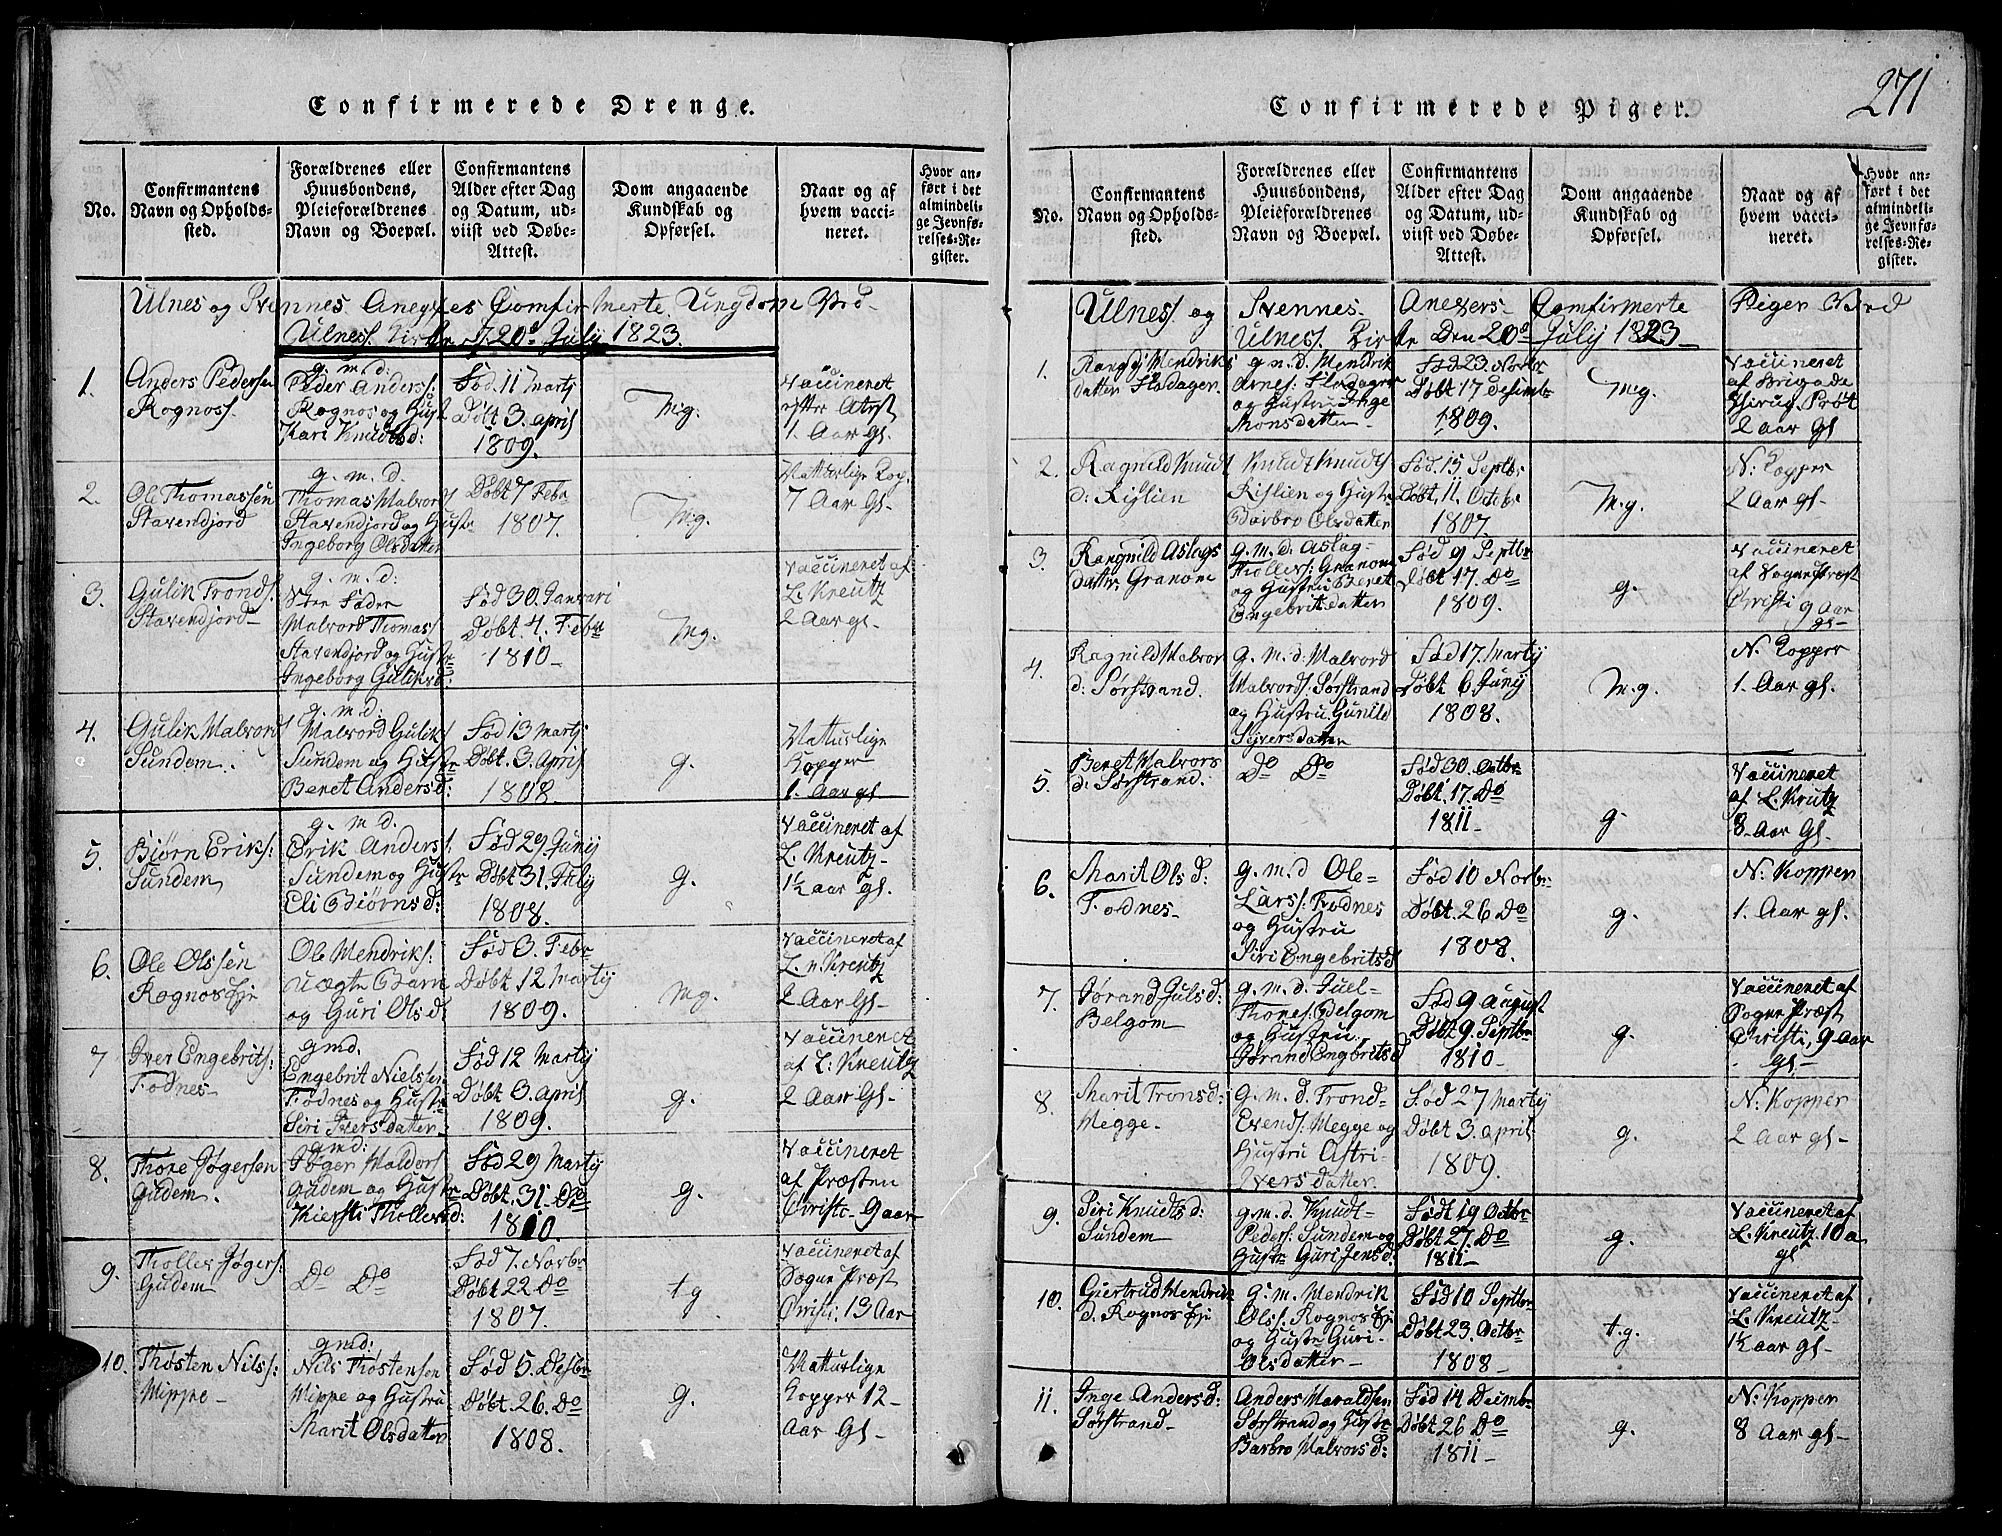 271
Confirmerede Drenge.
No.
Confirmantens
Navn og Opholds-
sted.
Forældrenes eller
Huusbondens,
Pleieforældrenes
Navn og Boepæl.
Confirmantens
Alder efter Dag
og Datum, ud-
viist ved Døbe-
Attest.
Dom angaaende
Kundskab og
Opførsel.
Naar og af
hvem vacci-
neret.
Hvor an-
ført i det
almindeli-
ge Jevnfø-
relses-Re-
gister.
Ulnes og Svennes Anexes Comfirmerte Ungdom Ved
Ulnes Kirke d. 20de Julij 1823.
1.
Anders Pedersen
Rognos.
g. m. d:
Peder Anders:
Rognos og Hust
Kari Knudsd:
Fød. 11 Martj
Døbt 3. april
1809.
Mg.
Vaccineret
efter Atest
1. Aar gl.
2.
Ole Thomassen
Stavendjord
g. m. d.
Thomas Halvord
Stavendjord og Hustr
Ingeborg Olsdatter
Døbt 7 Febr
1807.
Mg.
Natturlige Kop.
7 Aar Gl-
3.
Gulik Tronds.
Stavendjord
g. m. d:
Halvord Thomas
Stavendjord og Hustr
Ingeborg Guliksd:
Fød 30. Januari
Døbt. 4. Febr
1810-
Mg.
Vaccineret af
L. Kreutz
2 Aar gl.
4.
Gulik Halvord
Sundem.
g. m. d:
Halvord Gulik
Sundem og Hustr
Beret Andersd:
Fød 13 Martj
Døbt. 3. April
1808.
g.
Natturlige
Kopper
1. Aar gl
5.
Bjørn Eriks:
Sundem
g. m. d.
Erik Anders.
Sundem og Hustr
Eli Biørnsd:
Fød 29 Junij
Døbt 31. Julij
1808.
g.
Vaccineret af
L. Kreutz-
1½ aar gl.
6.
Ole Olssen
Rognos Eje
Ole Hendriks:
uægte Barn
og Guri Olsd
Fød 3. Febr
Døbt 12 Martij
1809.
Mg.
Vaccineret af
L. v. Kreutz
2 Aar Gl-
7
Iver Engebrits:
Fodnes-
gmd.
Engebrit Nielssen
Fodnes og Hustr
Siri Iversdatter
Fød 12 Martij
Døbt 3 april
1809.
g.
Vaccineret
af L: Kreutz
2 Aar Gl-
8.
Thore Jøgersen
Gudem.
gmd:
Jøger Haldors
Gudem og Hustr
Kiersti Thollersd:
Fød 29 Martij
Døbt. 31. Do
1810.
g.
Vaccineret
af Præsten
Christi- 9 aar
9.
Tholler Jøgers:
Gudem
Do Do
Fød 7. Novbr
Døbt 22 Do
1807.
tg
Vaccineret af
Sogne Præst
Christi: 13 Aar
10.
Thosten Nils:
Hippe-
gmd:
Nils Thostensen
Hippe og Hustru
Marit Olsdatter
Fød 5. Desbr
Døbt. 26. Do
1808.
g.
Natturlige
Kopper 12-
Aar Gl-
Confirmerede Piger.
No.
Confirmantens
Navn og Opholds-
sted.
Forældrenes eller
Huusbondens,
Pleieforældrenes
Navn og Boepæl.
Confirmantens
Alder efter Dag
og Datum, ud-
viist ved Døbe-
Attest.
Dom angaaende
Kundskab og
Opførsel.
Naar og af
hvem vacci-
neret.
Hvor an-
ført i det
almindeli-
ge Jevnfø-
relses-Re-
gister.
Ulnes. og Svennes- Anexers- Comfirmerte Piger Ved
Ulnes. Kirke Den 20de Julij 1823-
1.
Rangdj Hendriks
datter Flodager
g. m. d. Hendrik
Arnes: Flodager
og Hustru Inge
Monsdatter-
Fød 23. Novbr
Døbt 17 Desemb
1809.
Mg.
Vaccineret
af Brigade
Chirug. Prøt
2 aar Gl
2.
Ragnild Knudt
d: Rislien
Knudt Knudts
Rislien og Hustr
Barbro Olsdatter
Fød. 15 Septbr
Døbt, 11. Octobr
1807.
M.g.
N: Kopper
2 Aar gl-
3.
Rangnild Aslags
datter Granom
g. m. d: Aslag-
Tholles: Granom
og Hustru Beret
Engebritsdatter
Fød 9 Septbr
Døbt 17. Do
1809.
g.
Vaccineret
af Sogne Præst
Christi 9 Aar
gl-
4.
Ragnild Halvor
d: Sørstrand.
g. m. d: Halvord
Halvords. Sørstrand
og Hustru Gunild
Syversdatter
Fød 17. Martij
Døbt 6. Junij
1808.
M.g.
N. Kopper
1. Aar gl.
5.
Beret Halvors
d: Sørstrand:
Do Do
Fød 30. Octbr
Døbt. 17. Do
1811.
g.
Vaccineret
af L. Krutz
8 Aar Gl.
6.
Marit Ols d:
Fodnes-
g. m. d Ole-
Lars: Fodnes
og Hustru
Siri Engebritsd
Fød 10 Novbr
Døbt. 26 Do
1808.
g.
N: Kopper
1. Aar gl.
7.
Jørand Juls d:
Belgom
g. m. d. Juel-
Thores: Belgom
og Hustru
Jørand Engbritsd
Fød 9 August
Døbt 9. Septbr
1810-
g.
Vaccineret af
Sogne Præst
Christi, 9 aar
gl-
8.
Marit Tronsd:
Hegge-
g. m. d. Trond-
Evends. Hegge og
Hustru Astri-
Iversdatter
Fød 27 Martij
Døbt 3. april
1809.
g.
N: Kopper
2 Aar gl-
9.
Siri Knudts d:
Sundem
g. m. d. Knudt-
Peders. Sundem og
Hustr Guri Jensd:
Født 19 Octbr
Døbt 27. Do
1811-
g.
Vaccineret af
L. Kreutz 10 a
gl
10.
Giertrud Hendrik
d. Rognos Eje
g. m. Hendrik
Ols. Rognos Eje
og Hustr Guri-
Olsdatter-
Fød 10 Septbr
Døbt 23. Octbr
1808-
t.g.
Vaccineret af
L. Kreutz-
1½ aar gl-
11.
Inge Anders d:
Sørstrand.
Anders Haraldsen
Sørstrand og Hustr
Barbro Halvorsd:
Fød 14 Decmbr
Døbt 26 Do
1811-
g.
N: Kopper
8 Aar gl-